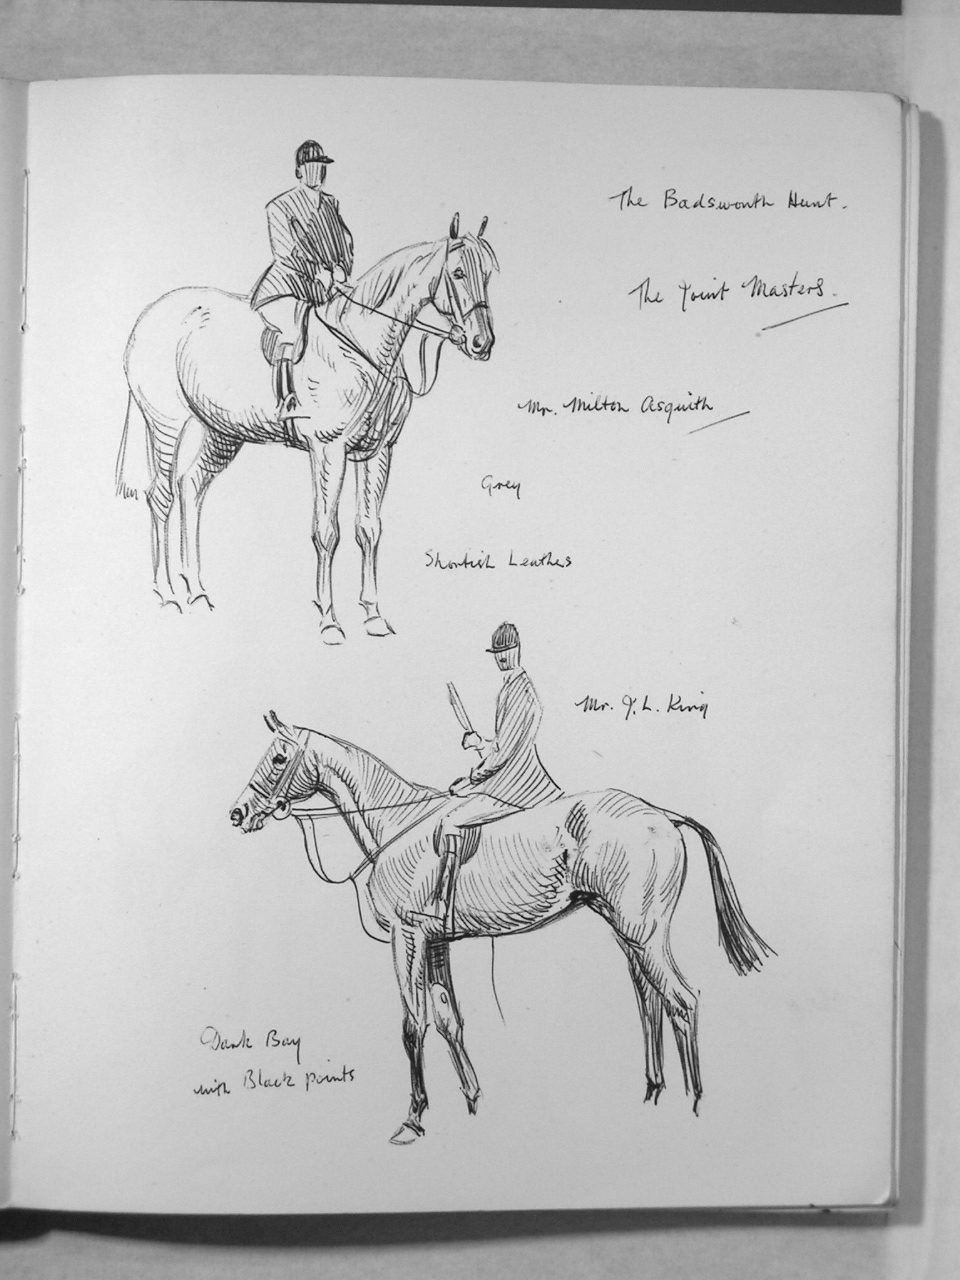 The Badsworth Hunt.
The Joint Masters.
Mr. Milton Asquith
Grey
Shortish Leathers
Mr. J. L. King
Dark Bay
with Black points